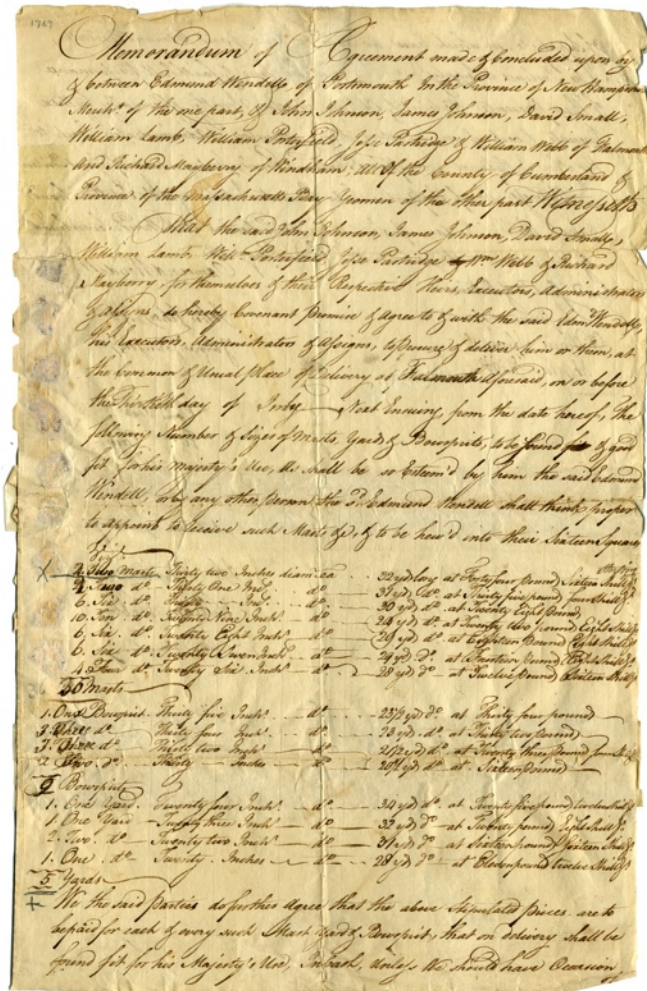 1767
Memorandum of Agreement made & Concluded upon by
& between Edmund Wendell, of Portsmouth In the Province of New Hampsr
Mercht. of the one part, & John Johnson, James Johnson, David Small,
William Lamb, William Porterfield, Jesse Partridge & William Webb of Falmouth
and Richard Mayberry of Windham, All Of the County of Cumberland &
Province of the Massachusetts Bay Yeomen of the other part Witnesseth
That the said John Johnson, James Johnson, David Small,
William Lamb, Willm. Porterfield, Jesse Partridge & Wm Webb & Richard
Mayberry, for themselves & their Respective Heirs, Executors, Administrators
& assigns, do hereby Covenant Promise & Agree to & with the said Edmd Wendell,
his Executors, Administrators & Assigns, to procure & deliver him or them, at
the Common & Usual place of Delivery at Falmouth Aforesaid, on or before
the Thirtieth day of July Next Ensuing from the date hereof, The
following Number & Sizes of Masts, Yards & Bowsprits, to be found & good
fit for his Majesty's Use, As shall be so Esteem'd by him the said Edmund
Wendell, or by any other Person the sd. Edmund Wendell shall think proper
to appoint to receive such Masts &c, & to be hew'd into their Sixteen Square
X 2 Two Masts Thirty two Inches diam 32 yd long at Forty four pound Sixteen Shill
Two do Thirty One Ins. do 31 yd do. at Thirty five pound four Shill
6. Six do. Thirty Ins. do 30 yd do. at Twenty Eight Pound
10. Ten do. Twenty Nine Inchs. do 29 yd do. at Twenty two pound Eight Shill
6. Six. do. Twenty Eight Inchs. do 29 yd do. at Eighteen Pound Eight Shill
6. Six do. Twenty Seven Inchs. do 29 yd do. at Fourteen pound Eight Shill
4. Four do. Twenty Six Inchs. do 28 yd do. at Twelve pound Sixteen Shill
Masts
1. One Bowsprit Thirty five Inchs. do 23 1/2 yd do. at Thirty four pound
3. Three do. Thirty four Inchs. do 23 yd do. at Thirty two pound
3. Three do. Thirty two Inchs do 21 1/2 yd do. at Twenty three pound four Shill
2. Two. do. Thirty Inches do yd do. at Sixteen pound
9 Bowsprits
1. One Yard. Twenty four Inchs. do 34 yd do. at Twenty five pound twelve Shill
1. One Yard Twenty three Inchs. do 32 yd do. at Twenty pound Eight Shill
2. Two. do Twenty two Inchs. do 31 yd do at Sixteen pound Sixteen Shill
1. One. do Twenty. Inches do 28 yd do at Eleven pound twelve Shill
5 Yards
We the said Parties do further Agree that the above Stipulated prices are to
be paid for each & every such Mast Yard & Bowsprit, that on delivery shall be
found fit for his Majesty's Use, In Cash, unless We should have Occasion